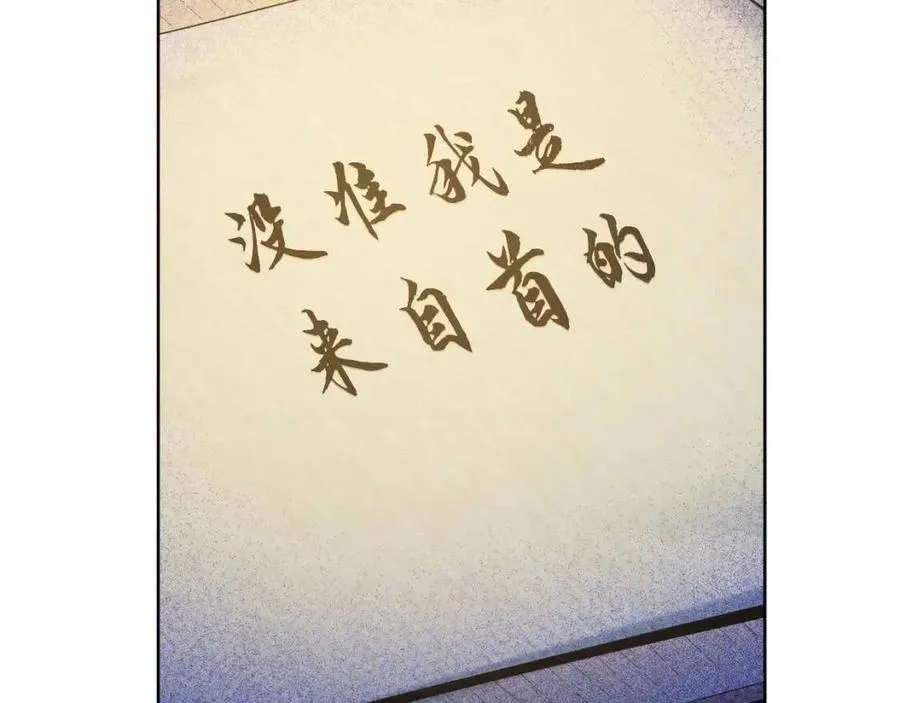 没准我是
来自首的